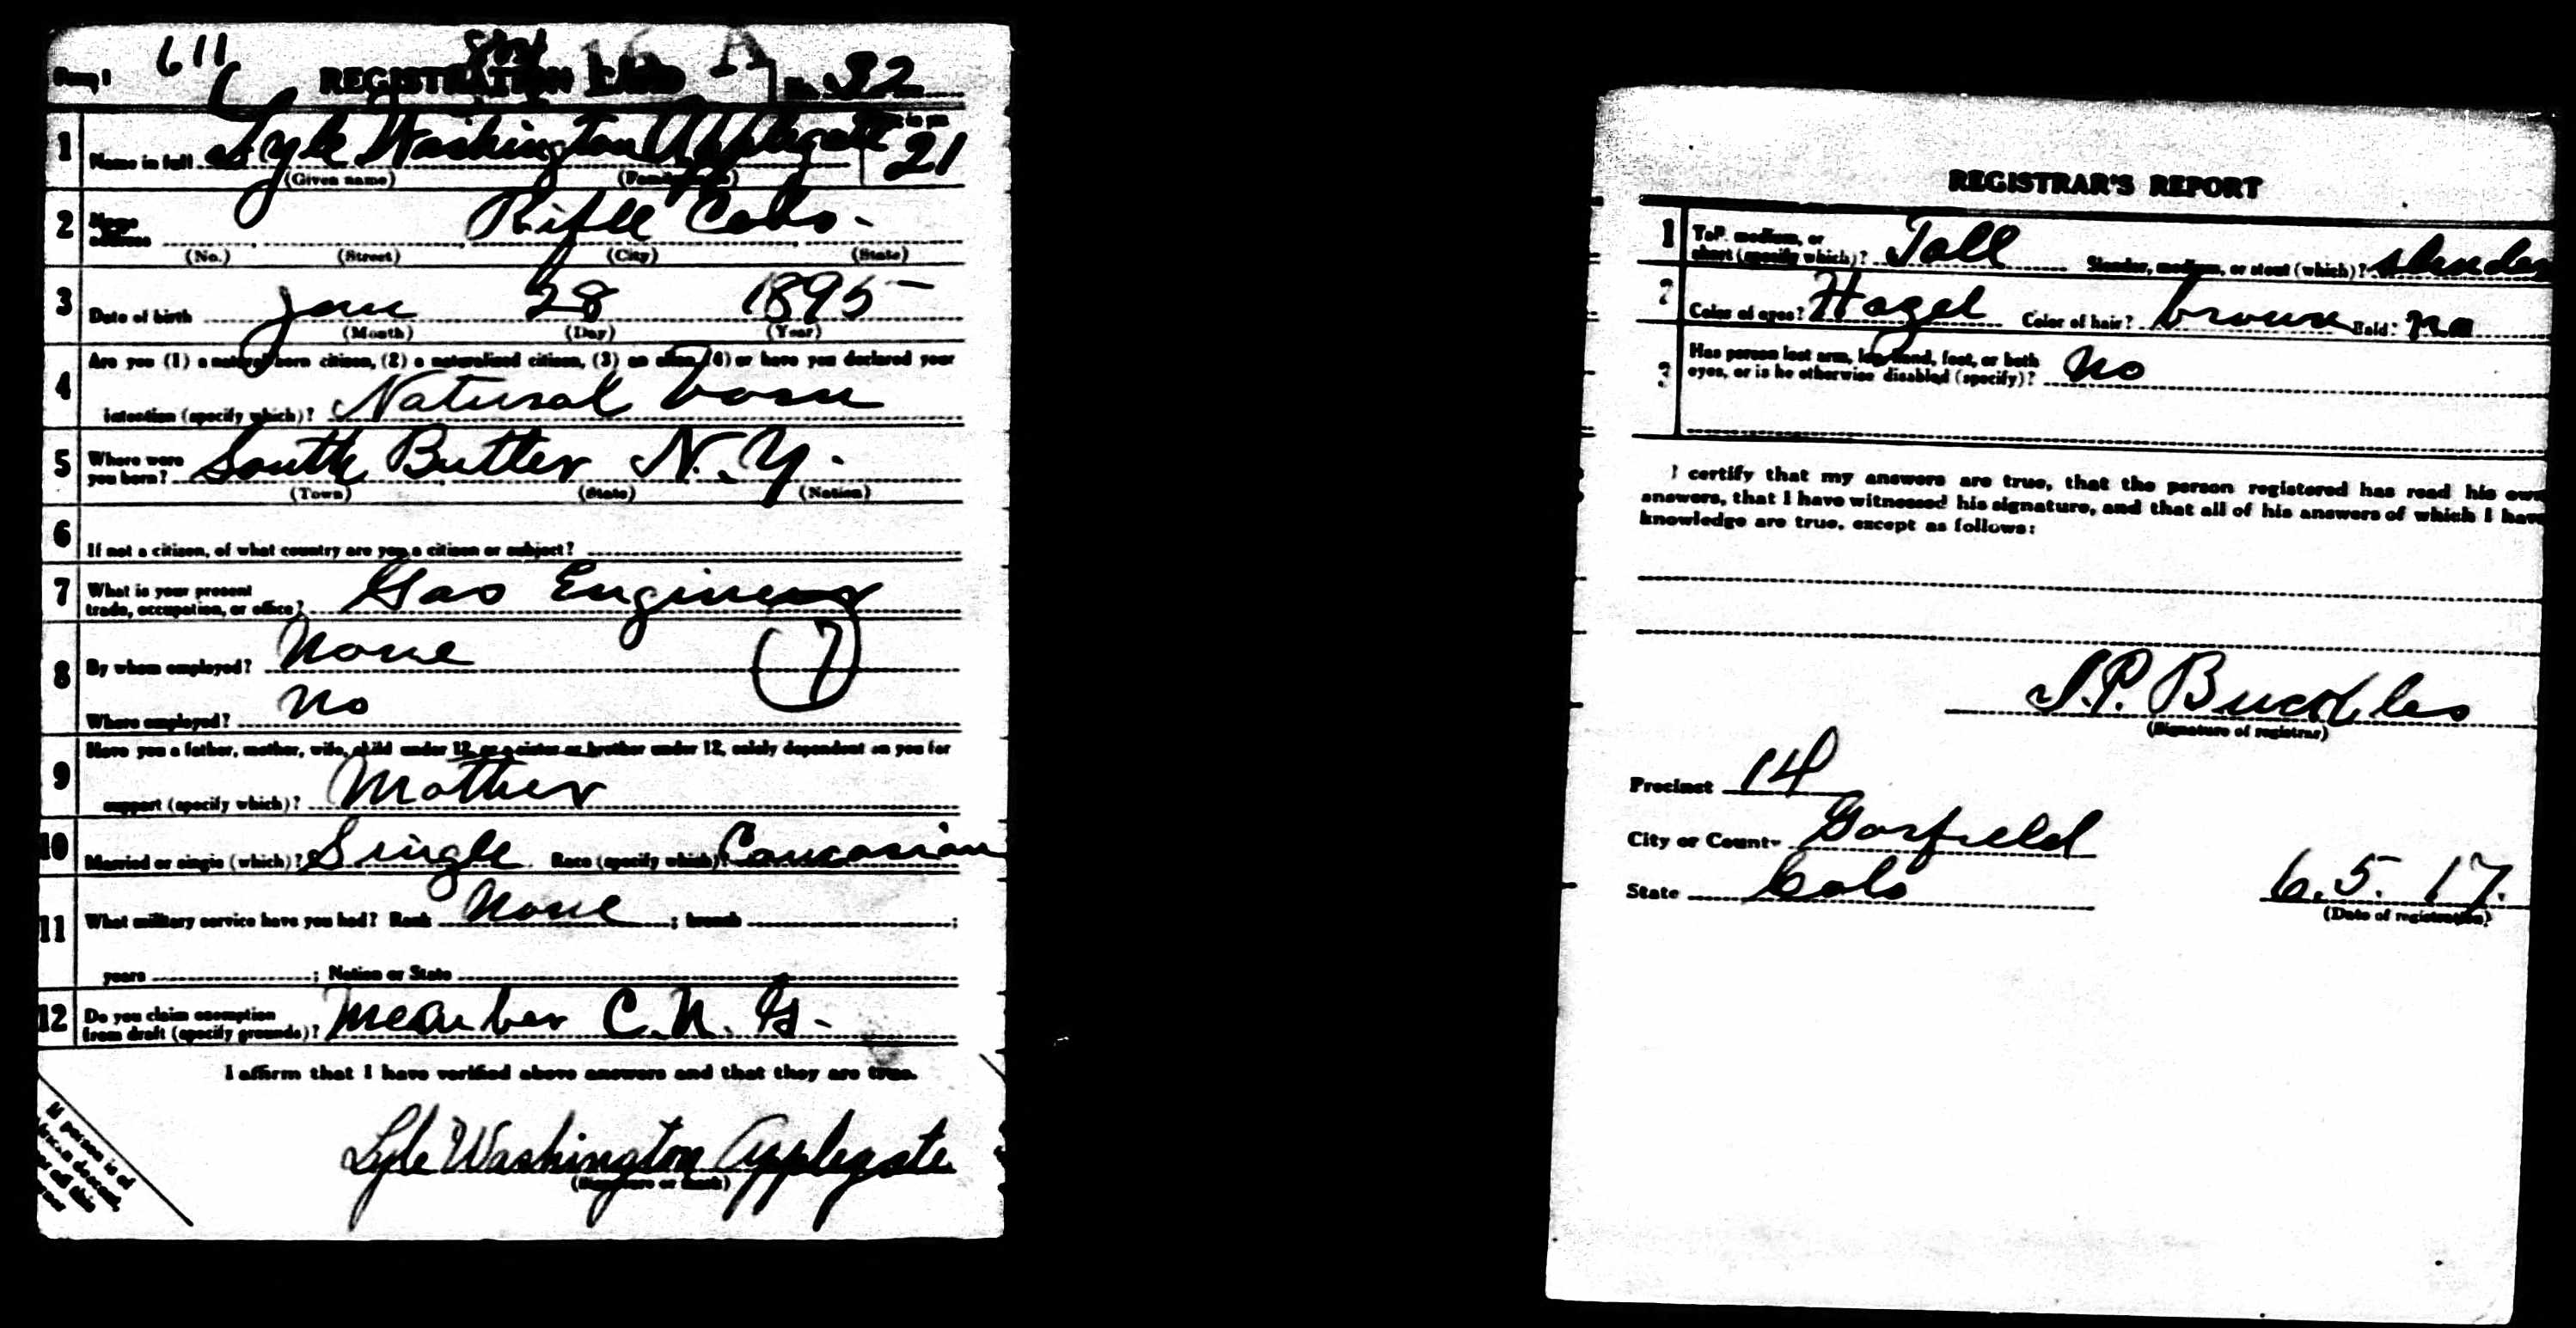 Form 1
611
REGISTRATION CARD
No. 32
1 Name in full Lyle Washington Applegate
21
(Given name) (Family name)
2 Home address Rifle Colo-
(No.) (Street) (City) (State)
3 Date of birth June 28 1895
(Month) (Day) (Year)
4 Are you (1) a natural born citizen, (2) a naturalized citizen, (3) an alien (4) or have you declared your
intention (specify which)? Natural born
5 Where were you born? South Butler N.Y.
(Town) (State) (Nation)
6 If not a citizen, of what country are you a citizen or subject?
7 What is your present trade, occupation, or office? Gas Engineer
8 By whom employed? None
7
Where employed? No
9 Have you a father, mother, wife, child under 12, or a sister or brother under 12, solely dependent on you for
support (specify which)? Mother
10 Married or single (which)? Single Race (specify which)? Caucasian
11 What military service have you had? Rank None ; branch ;
years ; Nation or State
12 Do you claim exemption from draft (specify grounds)? Member C.N.G-
I affirm that I have verified above answers and that they are true.
Lyle Washington Applegate
(Signature or mark)
If person is of
African descent,
REGISTRAR'S REPORT
1 Tall, medium, or short (specify which)? Tall Slender, medium, or stout (which)? slender
2 Color of eyes? Hazel Color of hair? brown Bald? no
3 Has person lost arm, leg, hand, foot, or both eyes, or is he otherwise disabled (specify)? No
I certify that my answers are true, that the person registered has read his own
answers, that I have witnessed his signature, and that all of his answers of which I have
knowledge are true, except as follows:
S.P. Buckles
(Signature of registrar)
Precinct 14
City or County Garfield
State Colo
6.5.17.
(Date of registration)